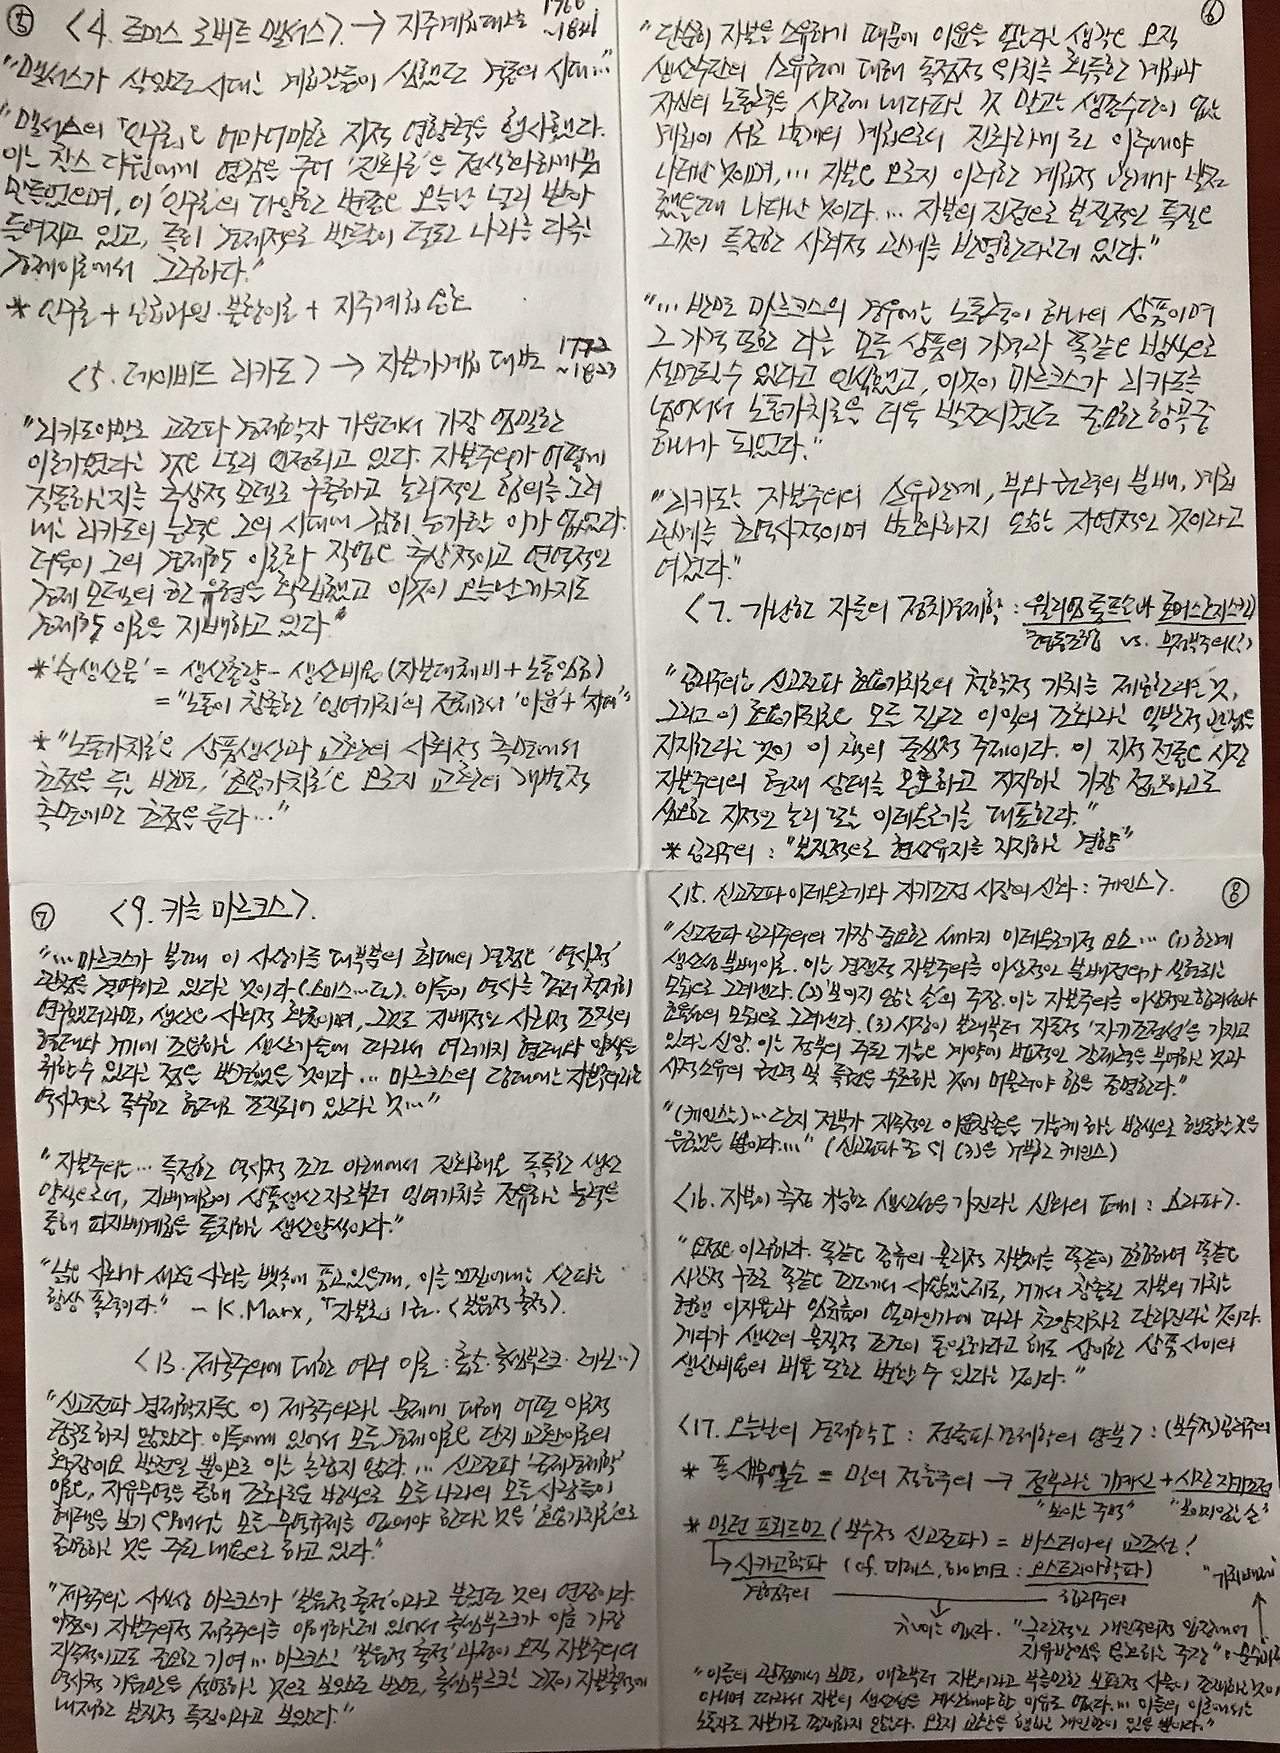 ⑤ <4. 토머스 로버트 맬서스> → 지주계급 대변 1766 ~1834
"맬서스가 살았던 시대는 계급갈등이 심했던 격동의 시대…"
"맬서스의 「인구론」은 어마어마한 지적 영향력을 행사했다.
이는 찰스 다윈에게 영감을 주어 '진화론'을 정식화하게끔
만들었으며, 이 '인구론'의 다양한 변종은 오늘날 널리 받아
들여지고 있고, 특히 경제적으로 발달이 덜된 나라를 다룬
경제이론에서 그러하다."
* 인구론 + 공급과잉·불황이론 + 지주계급 옹호
<5. 데이비드 리카도> → 자본가계급 대변 1772 ~1823
"리카도야말로 고전파 경제학자 가운데서 가장 엄밀한
이론가였다는 것은 널리 인정되고 있다. 자본주의가 어떻게
작동하는지를 추상적 모델로 구축하고 논리적인 함의를 그려
내는 리카도의 능력은 그의 시대에 감히 능가할 이가 없었다.
더욱이 그의 경제학 이론화 작업은 추상적이고 연역적인
경제 모델의 한 유형을 확립했고 이것이 오늘날까지도
경제학 이론을 지배하고 있다."
* '순생산물' = 생산총량 - 생산비용 (자본대체비 + 노동임금)
= "노동이 창출한 '잉여가치'의 전체로서 '이윤' + '지대'"
* "노동가치론은 상품생산과 교환의 사회적 측면에서
초점을 둔 반면, '효용가치론'은 오로지 교환의 개별적
측면에만 초점을 둔다…"
⑥
"단순히 자본을 소유하기 때문에 이윤을 얻는다는 생각은 오직
생산수단의 소유권에 대해 독점적 위치를 획득한 계급과
자신의 노동력을 시장에 내다파는 것 말고는 생존수단이 없는
계급이 서로 별개의 계급으로서 진화하게 된 이후에야
나타난 것이며, … 자본은 오로지 이러한 계급적 관계가 발전
했을 때 나타난 것이다. … 자본의 진정으로 본질적인 특질은
그것이 특정한 사회적 관계를 반영한다는데 있다."
"… 반면 마르크스의 경우에는 노동력이 하나의 상품이며
그 가격 또한 다른 모든 상품의 가격과 똑같은 방식으로
설명될 수 있다고 인식했고, 이것이 마르크스가 리카도를
넘어서서 노동가치론을 더욱 발전시켰던 중요한 항목중
하나가 되었다."
"리카도는 자본주의의 소유관계, 부와 권력의 분배, 계급
관계를 초역사적이며 변화하지 않는 자연적인 것이라고
여겼다."
<7. 가난한 자들의 정치경제학 : 윌리엄 톰프슨과 토머스 호지스킨>
협동조합 vs. 무정부주의(?)
"공리주의는 신고전파 효용가치론의 철학적 가치를 제공한다는 것,
그리고 이 효용가치론은 모든 집단 이익의 조화라는 일반적 관점을
지지한다는 것이 이 책의 중심적 주제이다. 이 지적 전통은 시장
자본주의의 현재 상태를 옹호하고 지지하는 가장 정교하고도
심오한 지적인 논리 또는 이데올로기를 대표한다."
* 공리주의 : "본질적으로 현상유지를 지지하는 경향"
⑦ <9. 카를 마르크스>.
"…마르크스가 볼 때 이 사상가들 대부분의 최대의 결점은 '역사적'
관점을 결여하고 있다는 것이다 (스미스…도). 이들이 역사를 좀더 철저히
연구했더라면, 생산은 사회적 활동이며, 그것도 지배적인 사회적 조직의
형태와 거기에 조응하는 생산기술에 따라서 여러가지 형태와 양식을
취할 수 있다는 점을 발견했을 것이다 … 마르크스의 당대에는 자본주의라는
역사적으로 특수한 형태로 조직되어 있다는 것…"
"자본주의는… 특정한 역사적 조건 아래에서 진화해온 독특한 생산
양식으로서, 지배계급이 상품생산자로부터 잉여가치를 전유하는 능력을
통해 피지배계급을 통치하는 생산양식이다."
"낡은 사회가 새로운 사회를 뱃속에 품고 있을 때, 이를 끄집어내는 산파는
항상 폭력이다." - K.Marx, 「자본론」 1권. <본원적 축적>.
<13. 제국주의에 대한 여러 이론 : 홉슨·룩셈부르크·레닌…>
"신고전파 경제학자들은 이 제국주의라는 문제에 대해 어떤 이론적
공헌도 하지 않았다. 이들에게 있어서 모든 경제이론은 단지 교환이론의
확장이요 발전일 뿐이므로 이는 놀랍지 않다. … 신고전파 '국제경제학'
이론은, 자유무역을 통해 조화로운 방식으로 모든 나라의 모든 사람들이
혜택을 보기 위해서는 모든 무역규제를 없애야 한다는 것을 '효용가치론'으로
증명하는 것을 주된 내용으로 하고 있다."
"제국주의는 사실상 마르크스가 '본원적 축적'이라고 불렀던 것의 연장이다.
이것이 자본주의적 제국주의를 이해하는데 있어서 룩셈부르크가 이룬 가장
지속적이고도 중요한 기여… 마르크스는 '본원적 축적' 과정이 오직 자본주의의
역사적 기원만을 설명하는 것으로 보았으므로 반면, 룩셈부르크는 그것이 자본축적에
내재한 본질적 특징이라고 보았다."
⑧
<15. 신고전파 이데올로기와 자기조정 시장의 신화 : 케인스>.
"신고전파 공리주의의 가장 중요한 세까지 이데올로기적 요소… (1) 한계
생산성 분배이론. 이는 경쟁적 자본주의를 이상적인 분배정의가 실현되는
모습으로 그려낸다. (2) '보이지 않는 손'의 주장. 이는 자본주의를 이상적인 합리성과
효율성의 모습으로 그려낸다. (3) 시장이 본래부터 자동적 '자기조정성'을 가지고
있다는 신앙. 이는 정부의 주된 기능은 계약에 법적인 강제력을 부여하는 것과
사적소유의 권력 및 특권을 수호하는 것에 머물러야 함을 증명한다."
"(케인스는)… 단지 정부가 지속적인 이윤창출을 가능케 하는 방식으로 행동할 것을
원했을 뿐이다…" (신고전파 중 위 (3)을 거부한 케인스)
<16. 자본이 측정 가능한 생산성을 가진다는 신화의 폐기 : 스라파>.
"요점은 이러하다. 똑같은 종류의 물리적 자본재를 똑같이 조합하여 똑같은
시간적 구조로 똑같은 조건에서 사용했는데도, 거기서 창출된 자본의 가치는
현행 이자율과 임금률이 얼마인가에 따라 천양지차로 달라진다는 것이다.
게다가 생산의 물질적 조건이 동일하다고 해도 상이한 상품 사이의
생산비용의 비율 또한 변할 수 있다는 것이다."
<17. 오늘날의 경제학 I : 정통파 경제학의 양분> : (보수적) 공리주의
* 폴 새뮤얼슨 = 밀의 절충주의 → 정부라는 기계신 + 시장 자기조정
"보이는 주먹" "보이지않는 손"
* 밀턴 프리드먼 (보수적 신고전파) = 바스티아의 교조성!
↳ 시카고학파 (cf. 미제스, 하이에크 : 오스트리아학파)
경험주의 합리주의
차이는 없다. "극단적인 개인주의적 입장에서
자유방임을 옹호하는 주장"
"이들의 관점에서 보면, 애초부터 자본이라고 부를만한 보편적 사물이 존재하는 것이
아니며 따라서 자본의 생산성을 계산해야 할 이유도 없다. … 이들의 이론에서는
노동자도 자본가도 존재하지 않는다. 오로지 교환을 행하는 개인만이 있을 뿐이다."